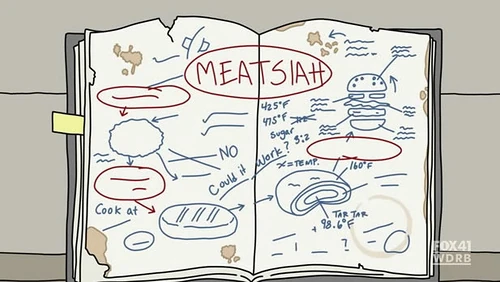 MEATSIAH
425°F
475°F
sugar
3:2
NO
Could it work?
X=TEMP.
160°F
Cook at
TAR TAR
98.6°F
?
FOX41
WDRB